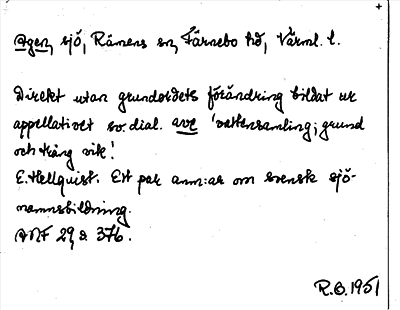 Agen, sjö, Rämens sn, Färnebo hd, Värml. l.
Direkt utan grundordets förändring bildat ur
appellativet sv. dial. ave 'vattensamling; grund
och trång vik'.
E. Hellquist. Ett par anm:ar om svensk sjö-
namnsbildning.
ANF 29, s. 376.
R.B. 1951